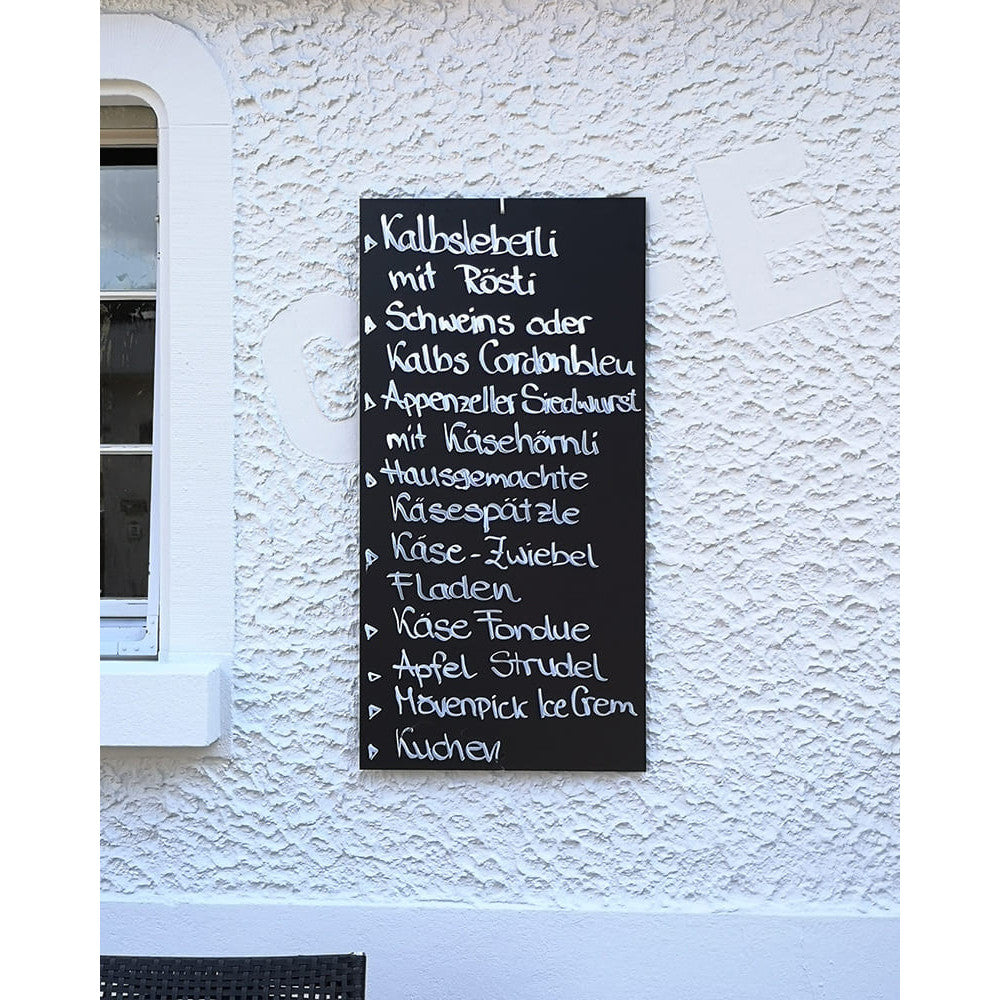 Kalbsleberli
mit Rösti
Schweins oder
Kalbs Cordonbleu
Appenzeller Siedwurst
mit Käsehörnli
Hausgemachte
Käsespätzle
Käse-Zwiebel
Fladen
Käse Fondue
Apfel Strudel
Mövenpick Ice Crem
Kuchen